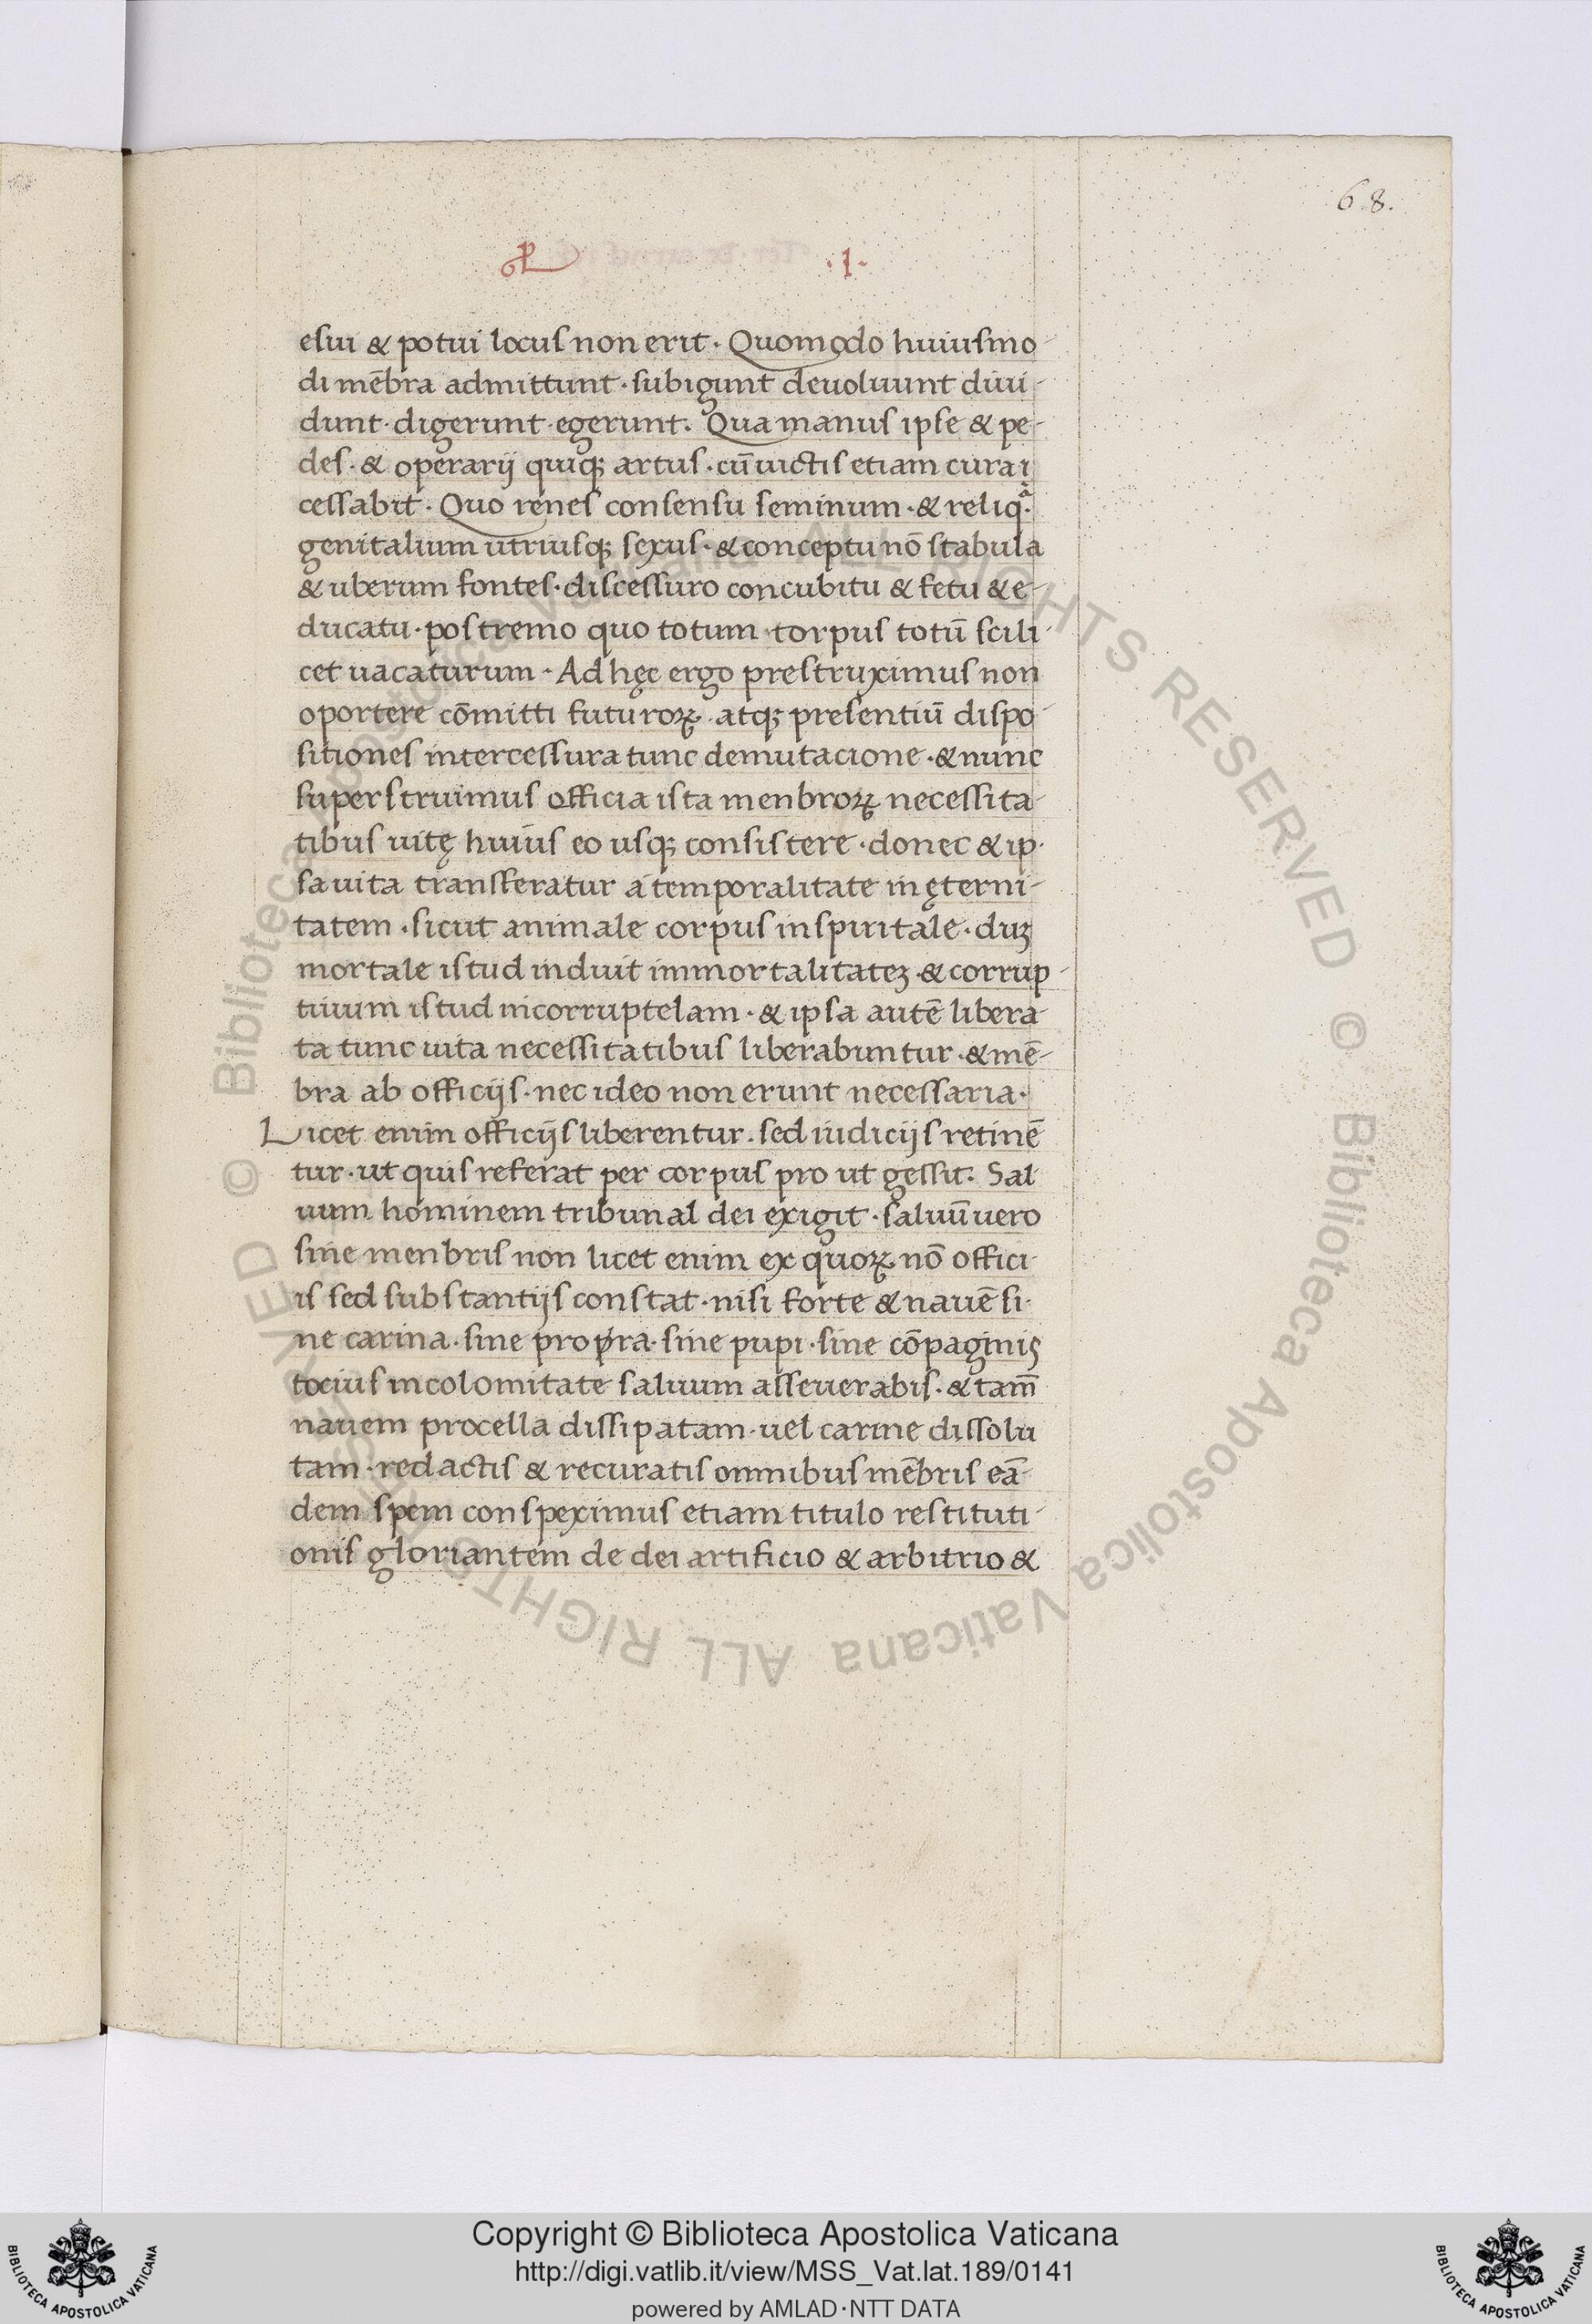 68.
.I.
esui & potui locus non erit. Quomodo huiusmo-
di mēbra admittunt. subigunt deuoluunt diui-
dunt. digerunt. egerunt. Qua manus ipse & pe-
des. & operarij quiq; artus. cū uictis etiam cura i
cessabit. Quo renes consensu seminum. & reliqͣ.
genitalium utriusq; sexus. & conceptu nō stabula
& uberum fontes. discessuro concubitu & fetu & e-
ducatu. postremo quo totum. torpus totū scili-
cet uacaturum. Ad hęc ergo prestruximus non
oportere cōmitti futuroꝝ. atq; presentiū dispo-
sitiones intercessura tunc demutacione. & nunc
superstruimus officia ista menbroꝝ necessita-
tibus uitę huius eo usq; consistere. donec & ip.
sa uita transferatur a temporalitate in ęterni-
tatem. sicut animale corpus in spiritale. duꝫ
mortale istud induit immortalitateꝫ. & corrup-
tiuum istud incorruptelam. & ipsa autē libera-
ta tunc uita necessitatibus liberabuntur. & mē-
bra ab officijs. nec ideo non erunt necessaria.
Licet enim officijs liberentur. sed iudicijs retinē
tur. ut quis referat per corpus pro ut gessit. Sal
uum hominem tribunal dei exigit. saluū uero
sine menbris non licet enim ex quoꝝ nō offici-
is sed substantijs constat. nisi forte & nauē si.
ne carina. sine propra. sine pupi. sine cōpaginis
tocius incolomitate saluum asseuerabis. & tam̄
nauem procella dissipatam. uel carine dissolu
tam. redactis & recuratis omnibus mēbris eā-
dem spem conspeximus etiam titulo restituti-
onis gloriantem de dei artificio & arbitrio &
© Biblioteca Apostolica Vaticana ALL RIGHTS RESERVED © Biblioteca Apostolica Vaticana ALL RIGHTS RESERVED
Copyright © Biblioteca Apostolica Vaticana
http://digi.vatlib.it/view/MSS_Vat.lat.189/0141
powered by AMLAD·NTT DATA
BIBLIOTECA APOSTOLICA VATICANA
BIBLIOTECA APOSTOLICA VATICANA